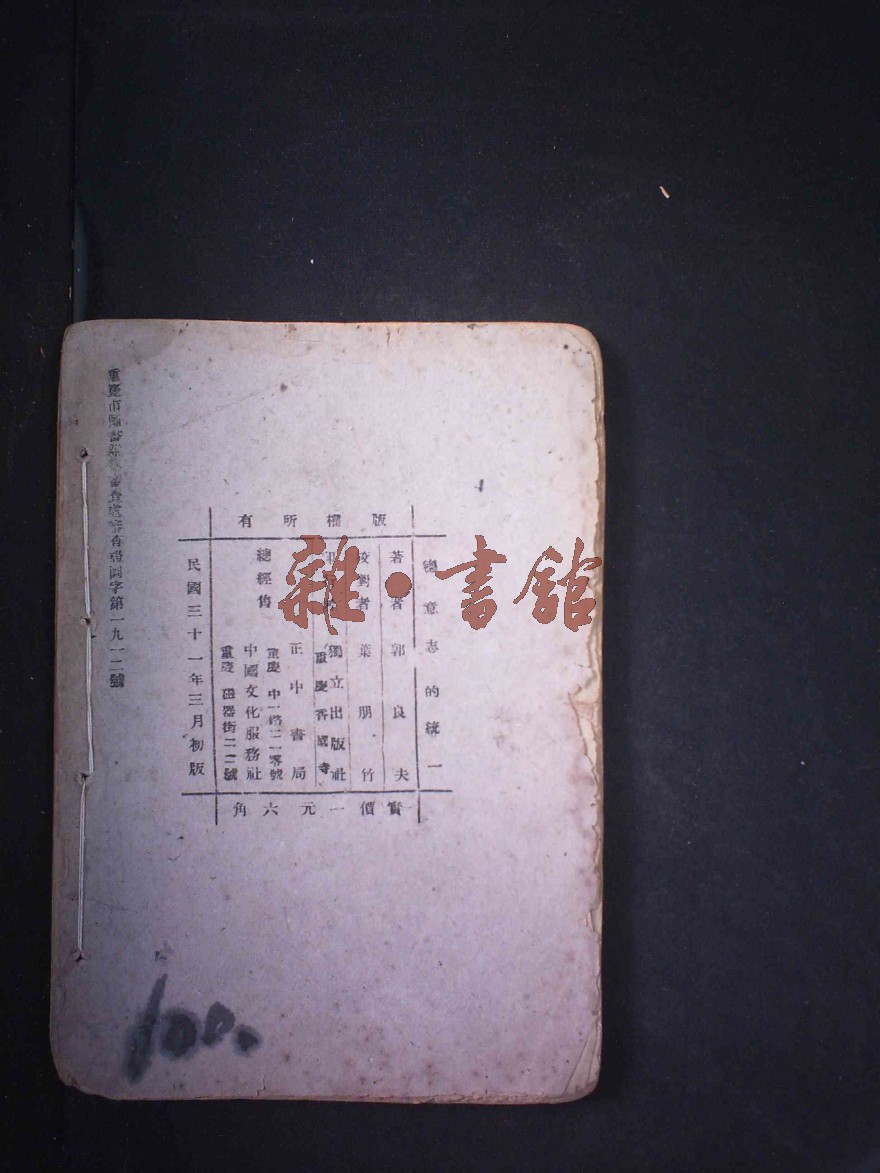 版權所有
總意志的統一
著者 郭良夫
校對者 葉朋竹
獨立出版社
重慶香國寺
總經售
正中書局
重慶 中一路二一零號
中國文化服務社
重慶 磁器街二二號
民國三十一年三月初版
實價一元六角
重慶市圖書雜誌審查處審查證圖字第一九一二號
雜·書館
100.